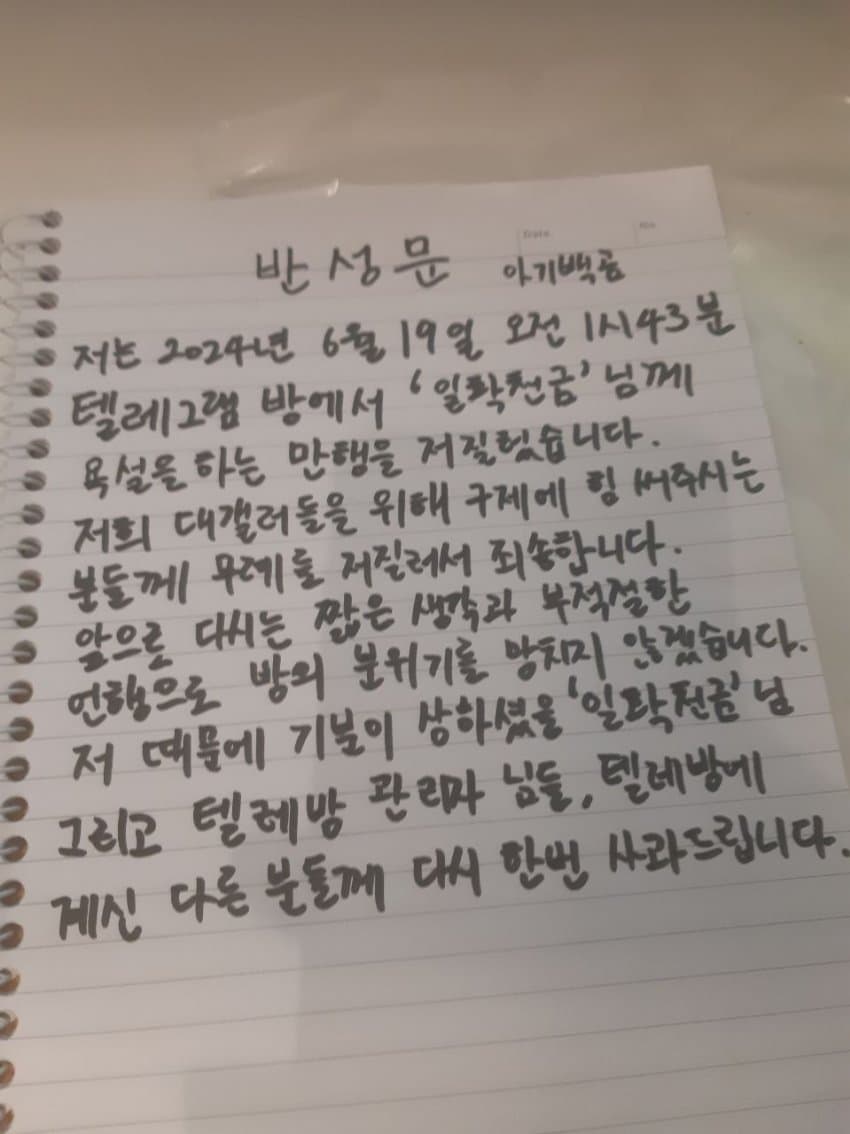 Date
No
반성문 아기백곰
저는 2024년 6월 19일 오전 1시43분
텔레그램 방에서 '일확천금'님께
욕설을 하는 만행을 저질렀습니다.
저희 대갤러들을 위해 구제에 힘 써주시는
분들께 무례를 저질러서 죄송합니다.
앞으로 다시는 짧은 생각과 부적절한
언행으로 방의 분위기를 망치지 않겠습니다.
저 때문에 기분이 상하셨을 '일확천금'님
그리고 텔레방 관리자 님들, 텔레방에
계신 다른 분들께 다시 한번 사과드립니다.